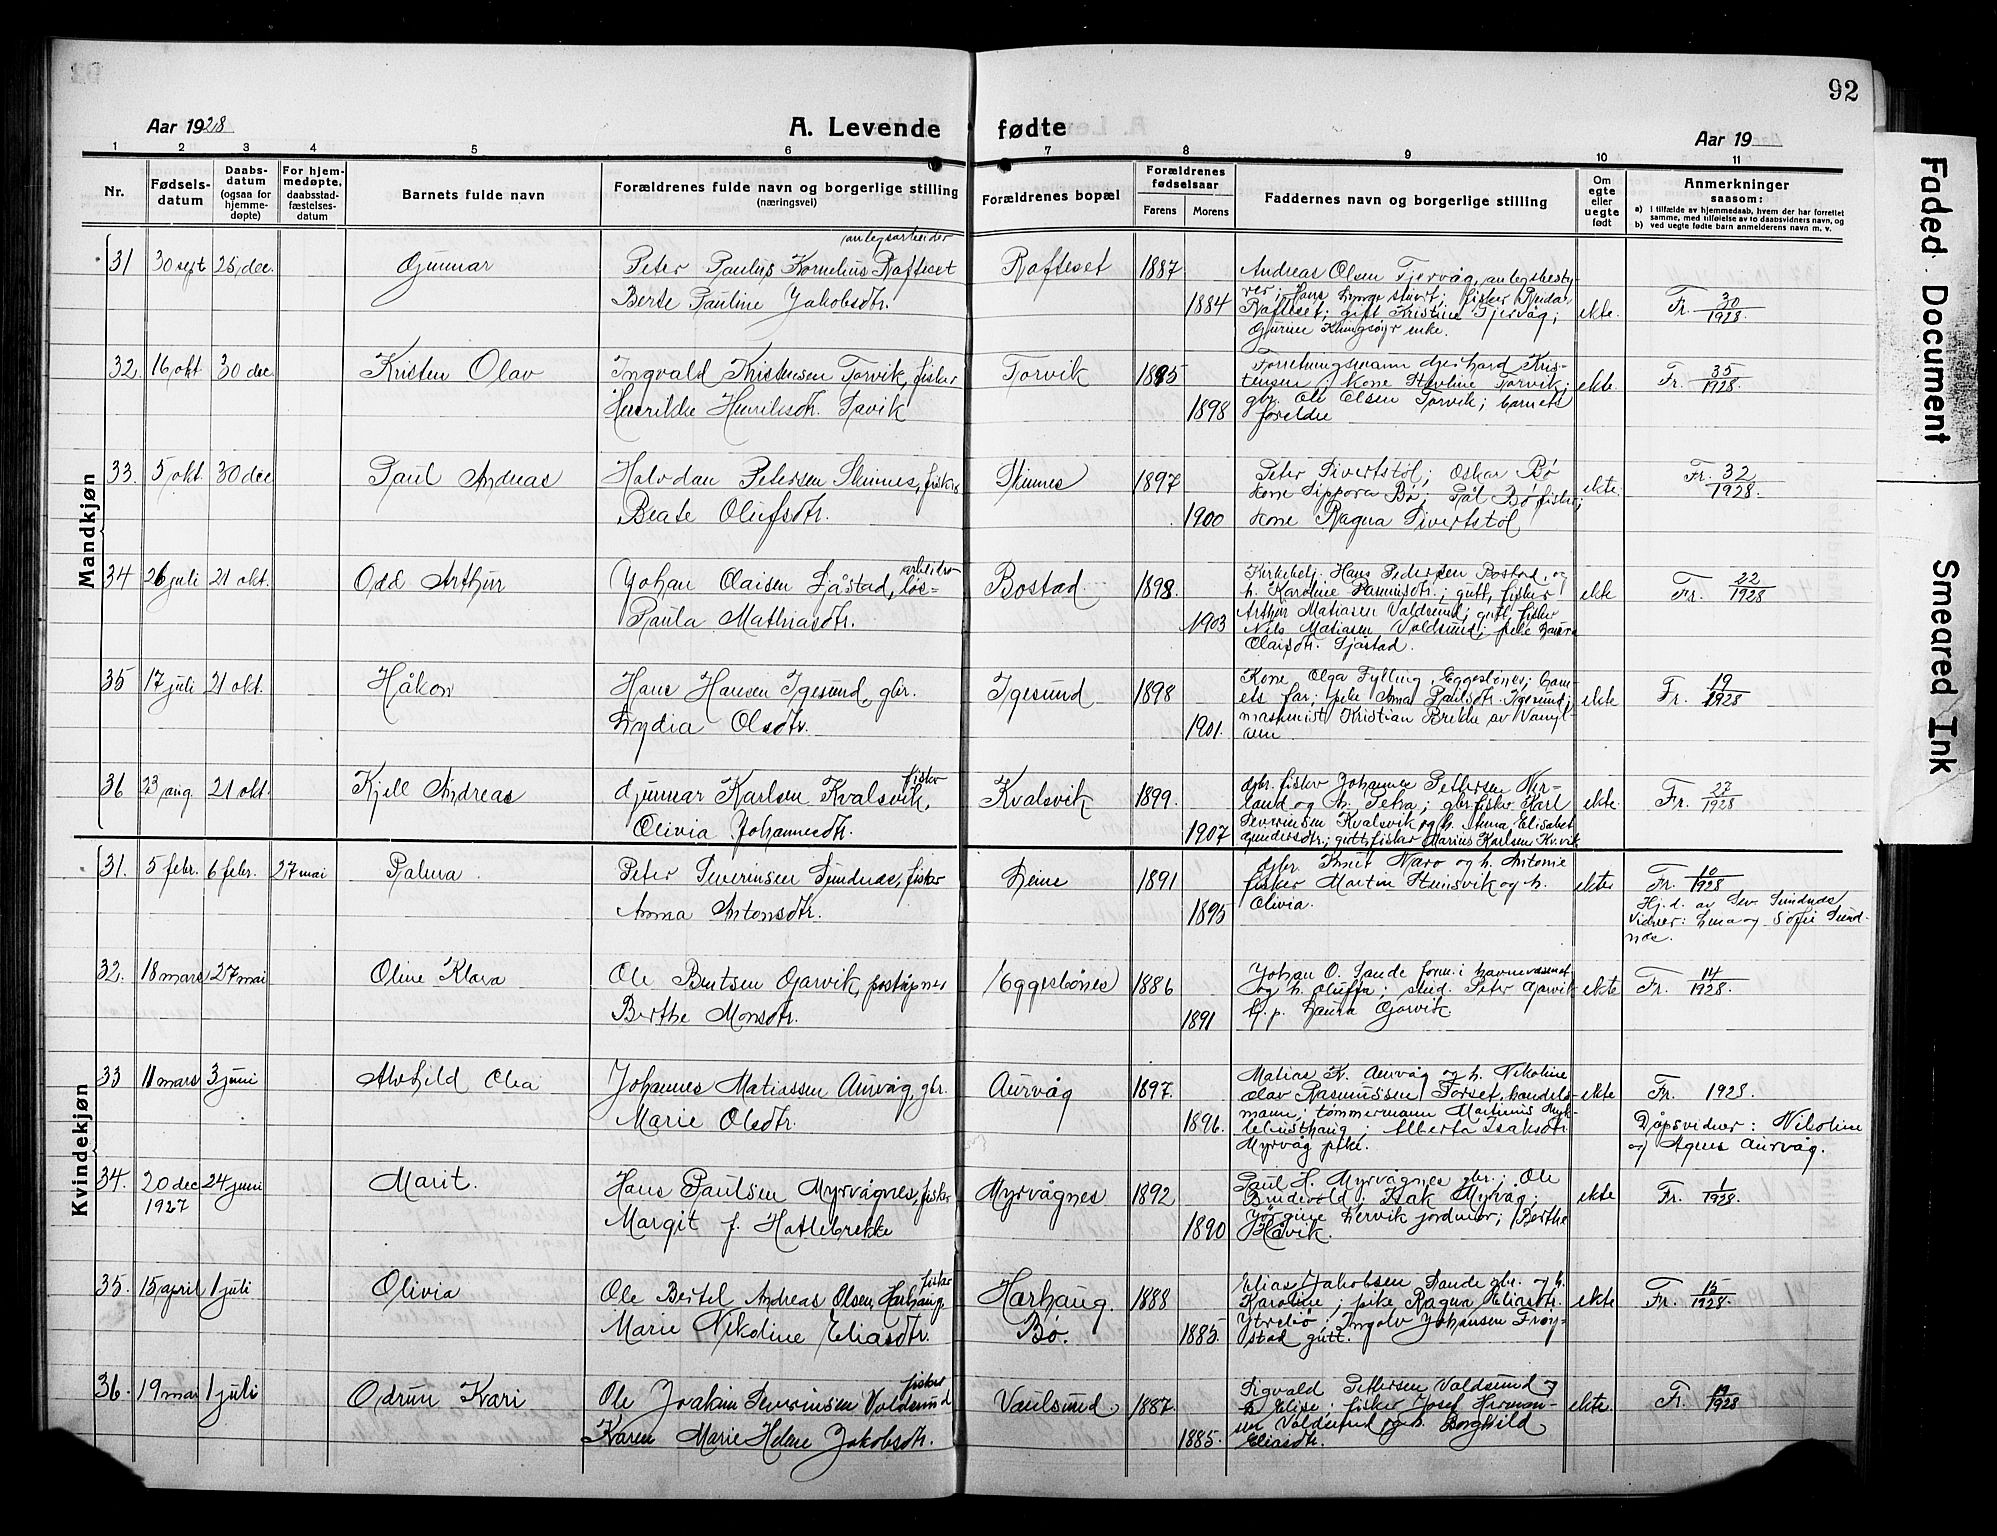 92
Aar 1928
A. Levende fødte
Aar 19
1 2 3 4 5 6 7 8 9 10 11
Nr.
Fødsels-
datum
Daabs-
datum
(ogsaa for
hjemme-
døpte)
For hjem-
medøpte,
daabsstad-
fæstelses-
datum
Barnets fulde navn
Forældrenes fulde navn og borgerlige stilling
(næringsvei)
Forældrenes bopæl
Forældrenes
fødselsaar
Farens Morens
Faddernes navn og borgerlige stilling
Om
egte
eller
uegte
født
Anmerkninger
saasom:
a) i tilfælde av hjemmedaab, hvem der har forrettet
samme, med tilføielse av to daabsvidners navn, og
b) ved uegte fødte barn anmelderens navn m. v.
Mandkjøn
31 30 sept 25 dec. Gunnar
anlegsarbeider
Peter Paulus Kornelius Rafteset
Berte Pauline Jakobsdtr.
Rafteset 1887
1884
Andreas Olsen Tjervåg, anlegsbesty-
rer; Hans ; fisker Reidar
Rafteset; gift Kristine Tjervåg;
Gurine Klungsøyr enke.
ekte. Fr. 30/1928.
32. 16 okt 30 dec Kristen Olav
Ingvald Kristensen Torvik, fisker
Henrikke Henriksdtr. Savik
Torvik 1895
1898
Forretningsmann Gjerhard Kris-
tensen; kone Torvik;
gbr. Ole Olsen Torvik; barnets
foreldre
ekte. Fr. 35/1928.
33. 5 okt. 30 dec Paul Andreas
Halvdan Petersen Skinnes, fisker
Beate Olufsdtr.
Skinnes 1897
1900
Peter Sivertstøl; Oskar Bø
kone Sippora Bø; Pål Bø fisker;
kone Ragna Sivertstøl
ekte. Fr. 32/1928.
34 26 juli 21 okt. Odd Arthur
arbeider
Johan Olaisen Sjåstad, løs-
Paula Mathiasdtr.
Bostad 1898.
1903
Kirkebetj. Hans Pedersen Bostad, og
h. Karoline Rasmusdtr.; gutt, fisker
Arthur Matiasen Valdsund; gutt, fisker
Nils Matiasen Valdsund; pike Laura
Olaisdtr. Sjåstad.
ekte Fr. 22/1928
35 17 juli 21 okt. Håkon
Hans Hansen Igesund, gbr.
Lydia Olsdtr.
Igesund 1898
1901.
Kone Olga Fylling, Eggesbønes; bar-
ets far; pike Anna Paulsdtr. Igesund;
maskinist Kristian Brekke av Vanyl-
ven
ekte Fr. 19/1928
36 23 aug 21 okt. Kjell Andreas
fisker
Gunnar Karlsen Kvalsvik,
Olivia Johannesdtr.
Kvalsvik 1899.
1907
gbr. fisker Johannes Pettersen Nør-
land og h. Petra; gbr. fisker Karl
Severinsen Kvalsvik og h. Anna Elisabet
Gundersdtr.; gutt, fisker Marius Karlsen Kv.vik
ekte. Fr. 27/1928
Kvindekjøn
31. 5 febr. 6 febr. 27 mai Palma.
Peter Severinsen Sundnæs, fisker
Anna Antonsdtr.
Leine 1891
1895
gbr. Knut Narø og h. Antonie
fisker Martin og h.
Olivia.
ekte Fr. 10/1928
Hj.d. av Sev. Sundnæs
Vidner: og Sofie Sund-
næs.
32. 18 mars 27 mai Oline Klara
Ole Bentsen Gjørvik, poståpner
Berthe Monsdtr.
Eggesbönes 1886
1891
Johan O. Sande form. i havnevæsenet
og h. Oluffa; stud. Peter Gjørvik
h. p. Laura Gjørvik
ekte Fr. 14/1928.
33 11 mars 3 juni Alvhild Olea
Johannes Matiassen Aurvåg, gbr.
Marie Olsdtr.
Aurvåg 1897.
1896.
Matias K. Aurvåg og h. Nikoline
Olav Rasmussen Torset, handels-
mann; tømmermann Martinus Myk-
lebusthaug; Alberta Isaksdtr
Myrvåg pike.
ekte Fr. 1928
Dåpsvidner: Nikoline
og Agnes Aurvåg.
34. 20 dec 24 juni Marit.
1927
Hans Paulsen Myrvågnes, fisker
Margit f. Hatlebrekke
Myrvågnes 1892
1890
Paul H. Myrvågnes gbr.; Ole
; Isak Myrvåg;
Jørgine Lervik jordmor; Berthe
Håvik.
ekte Fr. 1/1928.
35. 15 april 1 juli Olivia
fisker
Ole Bertel Andreas Olsen Harhaug.
Marie Nikoline Eliasdtr.
Harhaug.
Bø.
1888
1885.
Elias Jakobsen Sande gbr. og h.
Karoline; pike Ragna Eliasdtr.
Ytrebø; Ingolv Johansen Frøy-
stad gutt.
ekte Fr. 15/1928.
36. 19 mai 1 juli Odrun Kari
fisker
Ole Joakim Severinsen Voldsund
Karen Marie Helene Jakobsdtr.
Vaulsund 1887
1885.
Sigvald Pettersen Valdsund og
h. Elise; fisker Josef Herman-
sen Valdsund og h. Borghild
Eliasdtr.
ekte. Fr. 19/1928
Faded Document
Smeared Ink